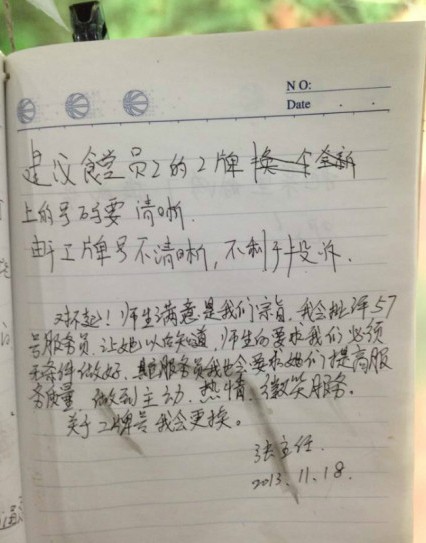 NO:
Date
建议食堂员工的工牌换个全新
上的号码要清晰.
由于工牌号不清晰,不利于投诉.
对不起!师生满意是我们宗旨,我会批评57
号服务员,让她以后知道,师生的要求我们必须
无条件做好.其服务员我也会要求她们提高服
务质量,做到主动、热情、微笑服务。
关于工牌号我会更换。
张主任.
2013.11.18.